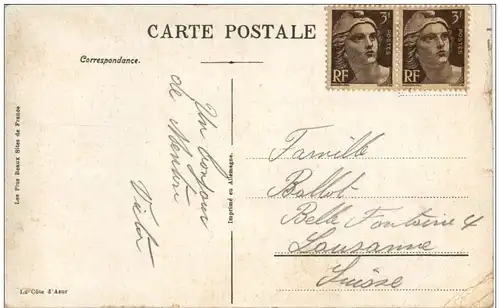 CARTE POSTALE
Correspondance.
3F
POSTES
RF
3F
POSTES
RF
Un bonjour
de Menton
Victor
Famille
Ballot
Belle Fontaine 4
Lausanne
Suisse
Imprimé en Allemagne.
Les Plus Beaux Sites de France
La Côte d'Azur